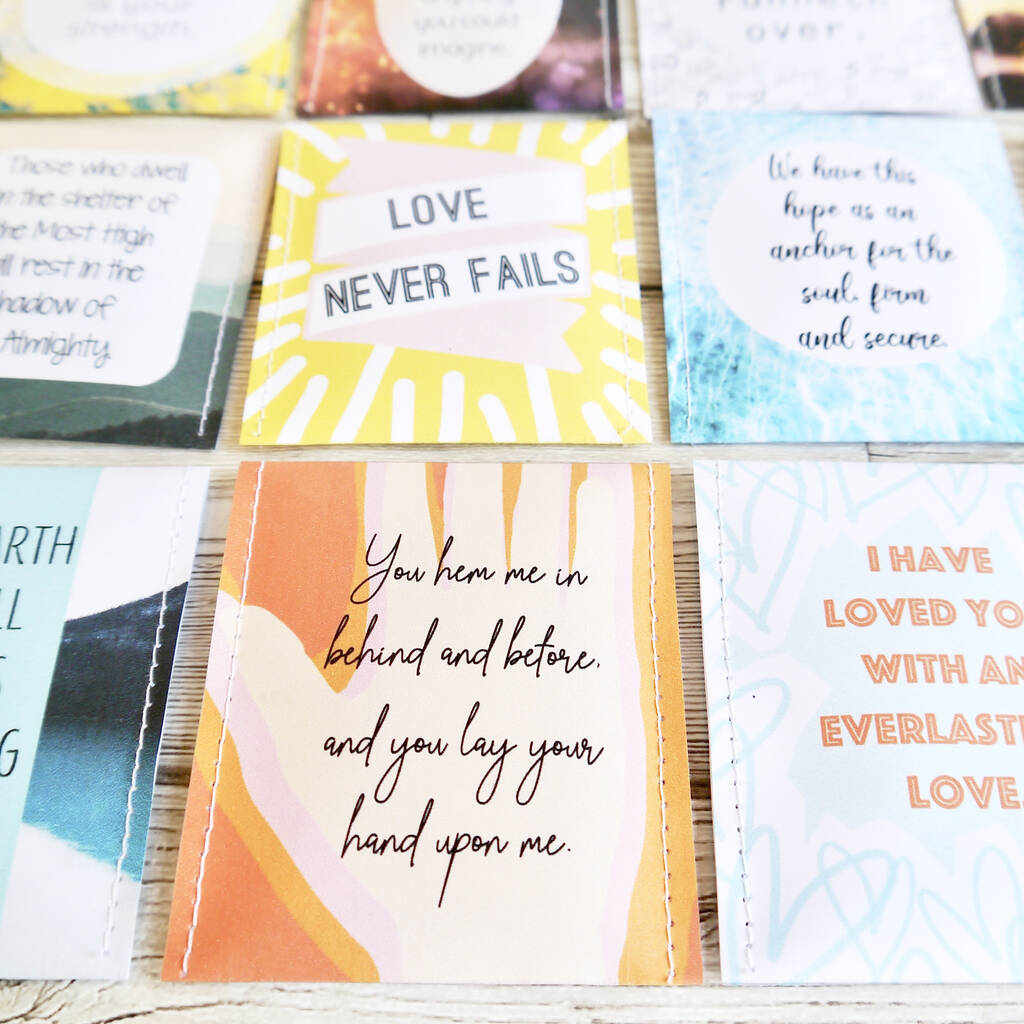 your
strength.
you could
imagine.
over.
Those who dwell
in the shelter of
the Most High
rest in the
of
Almighty
LOVE
NEVER FAILS
We have this
hope as an
anchor for the
soul, firm
and secure.
You hem me in
behind and before,
and you lay your
hand upon me.
I HAVE
LOVED YO
WITH AN
EVERLASTI
LOVE.